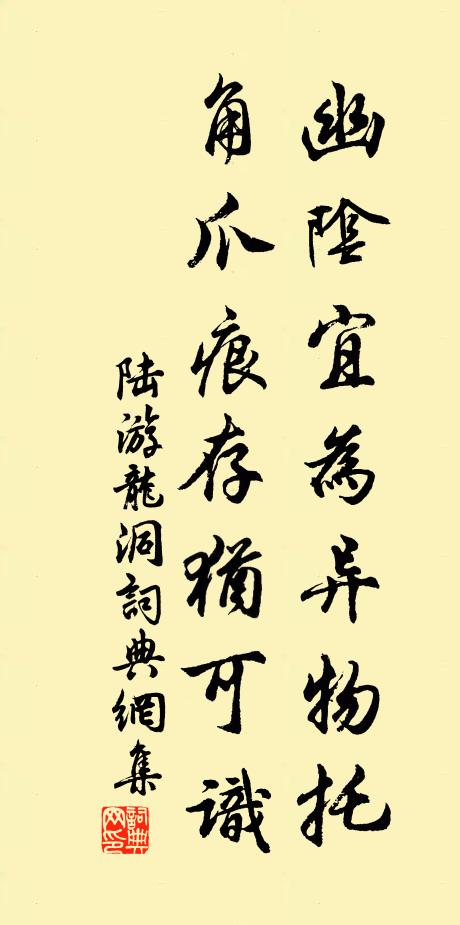 幽陰宜為异物托
角爪痕存猶可識
陆游龍洞詞典網集
詞典
网印